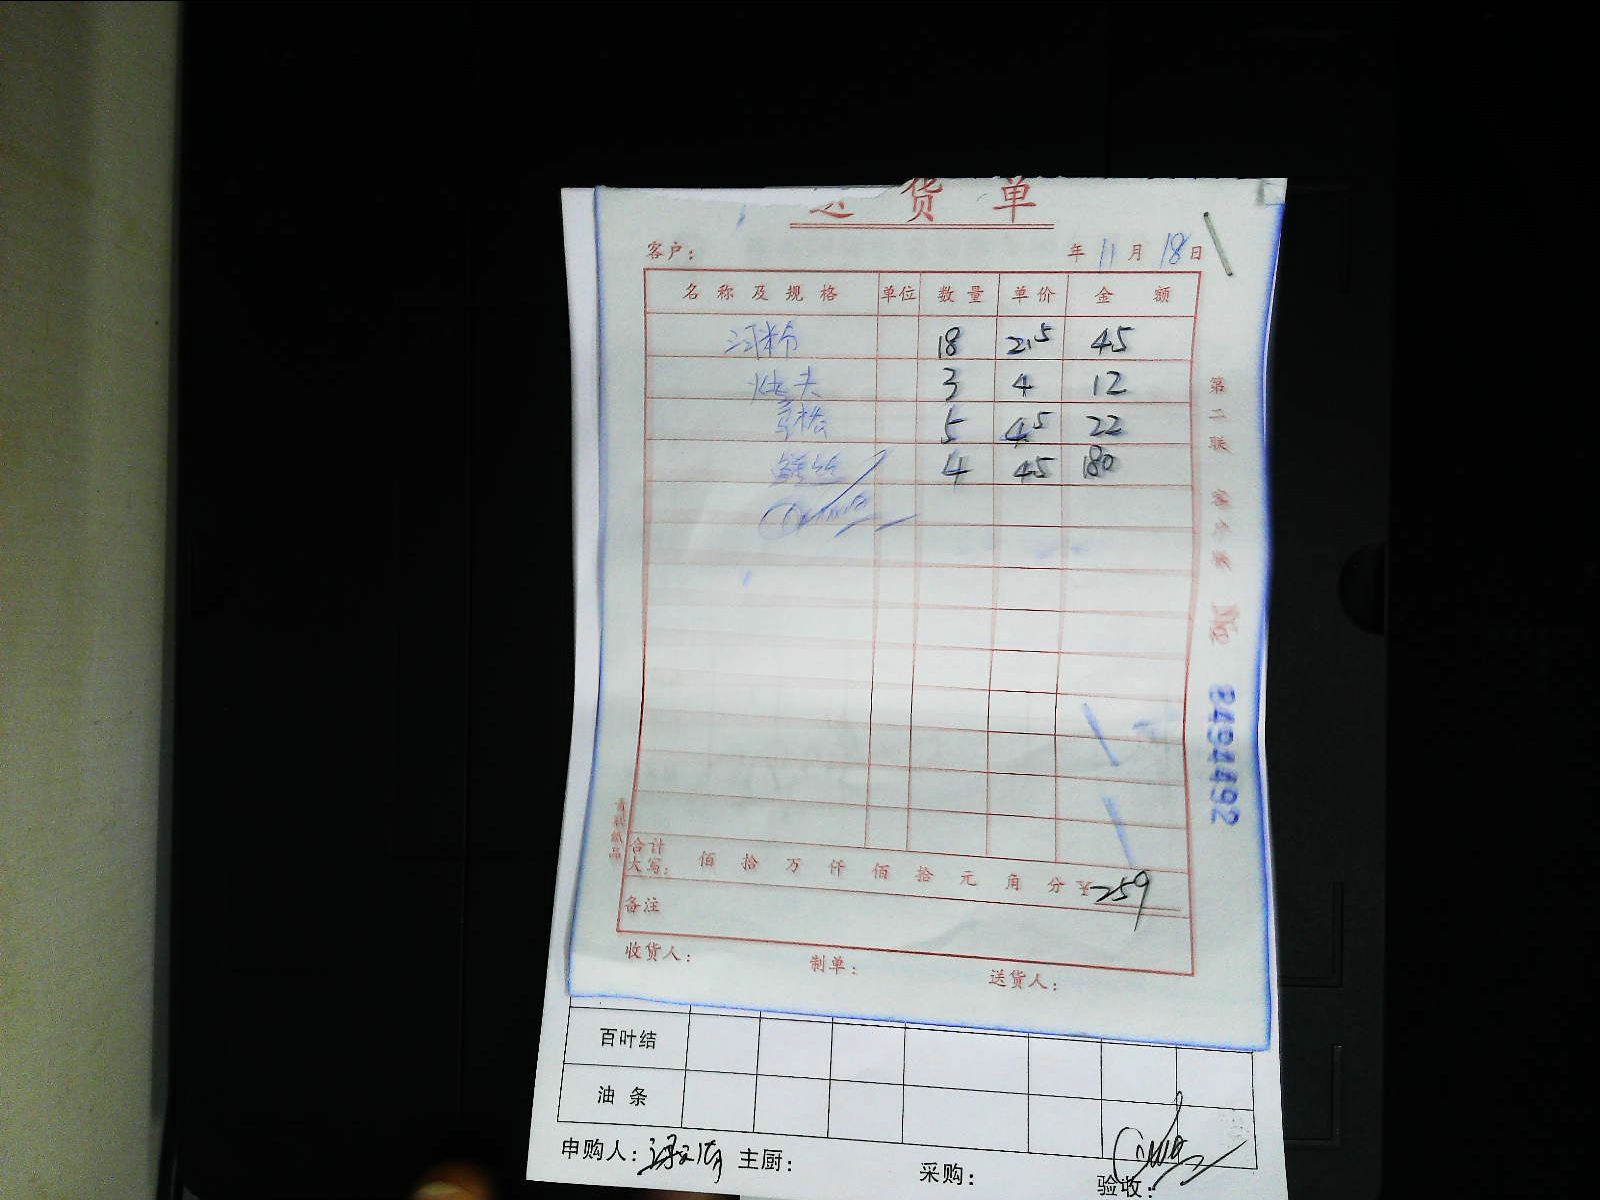 送货单
客户： 年 11 月 18 日
名称及规格 单位 数量 单价 金额
河粉 18 2.5 45
烤夫 3 4 12
3 4.5 22
鳝丝 4 45 180
第二联 客户联 № 8494492
青联纸品
合计大写： 佰 拾 万 仟 佰 拾 元 角 分 ¥259
备注
收货人： 制单： 送货人：
百叶结
油条
申购人： 主厨： 采购： 验收：